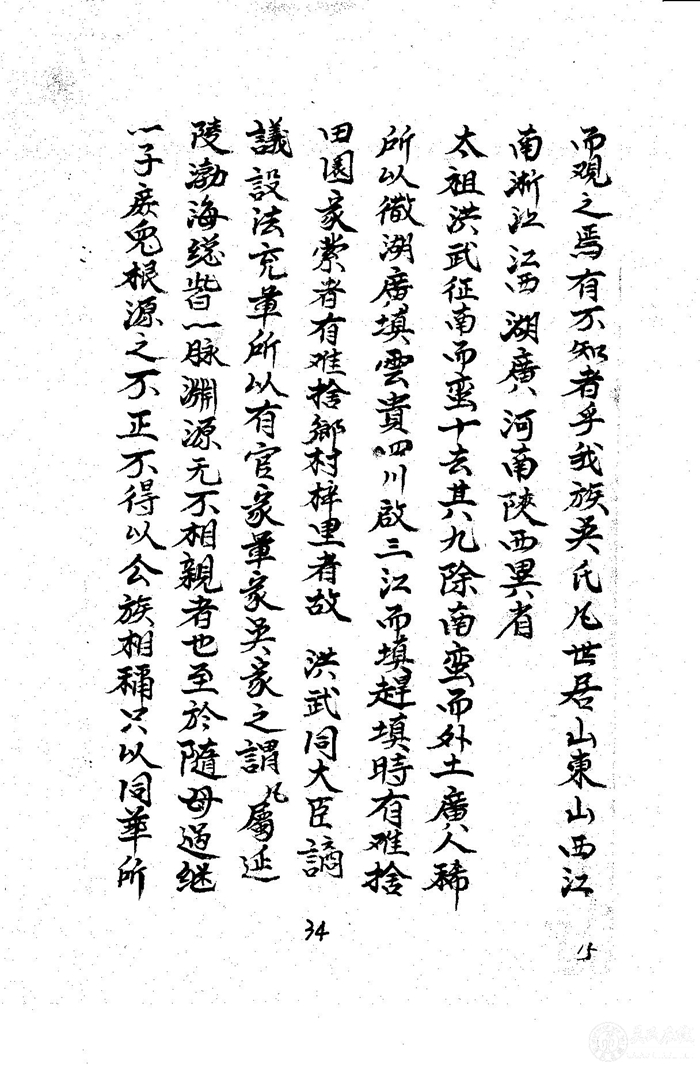 而观之焉有不知者乎我族吴氏凡世居山東山西江
南淅江江西湖廣河南陝西異省
太祖洪武征南而蛮十去其八九除南蛮而外土廣人稀
所以徹湖廣填雲貴四川啟三江而填趕填時有难捨
田園家業者有难捨鄉村梓里者故 洪武同大臣謫
議設法充軍所以有官家軍家吴家之謂凡屬延
陵渤海総皆一脉渊源无不相親者也至於随母过继
一子庶免根源之不正不得以公族相稱只以同華所
34
15